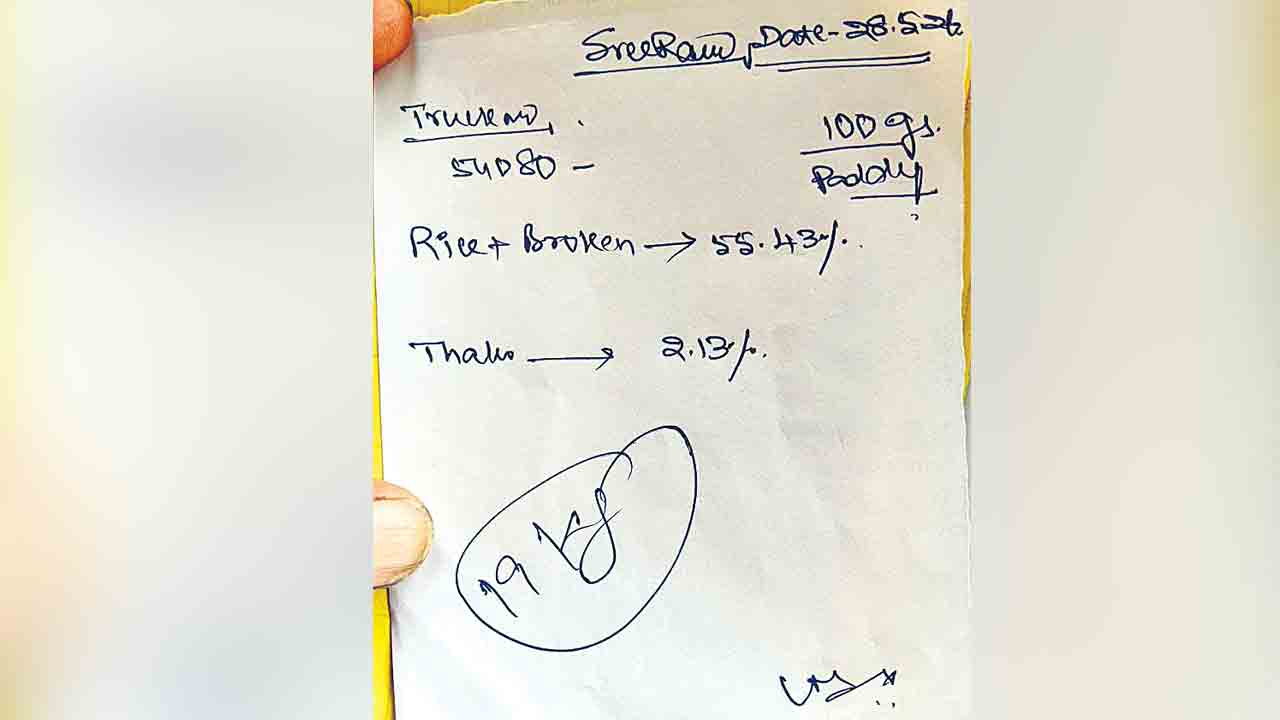 SreeRam, Date-28.5.26
Truck no,
54080 -
100 gs.
Paddy
Rice + Broken → 55.43%.
→ 2.13%.
19 kg